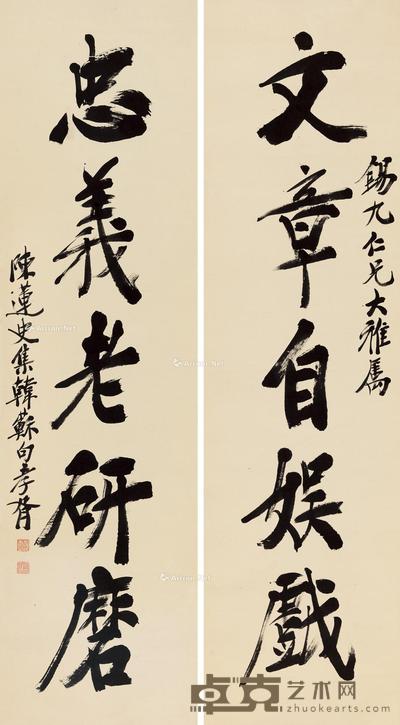 文章自娱戲
錫九仁兄大雅属
忠義老研磨
陳蓮史集韓蘇句孝胥
卓克艺术网
www.zhuokearts.com